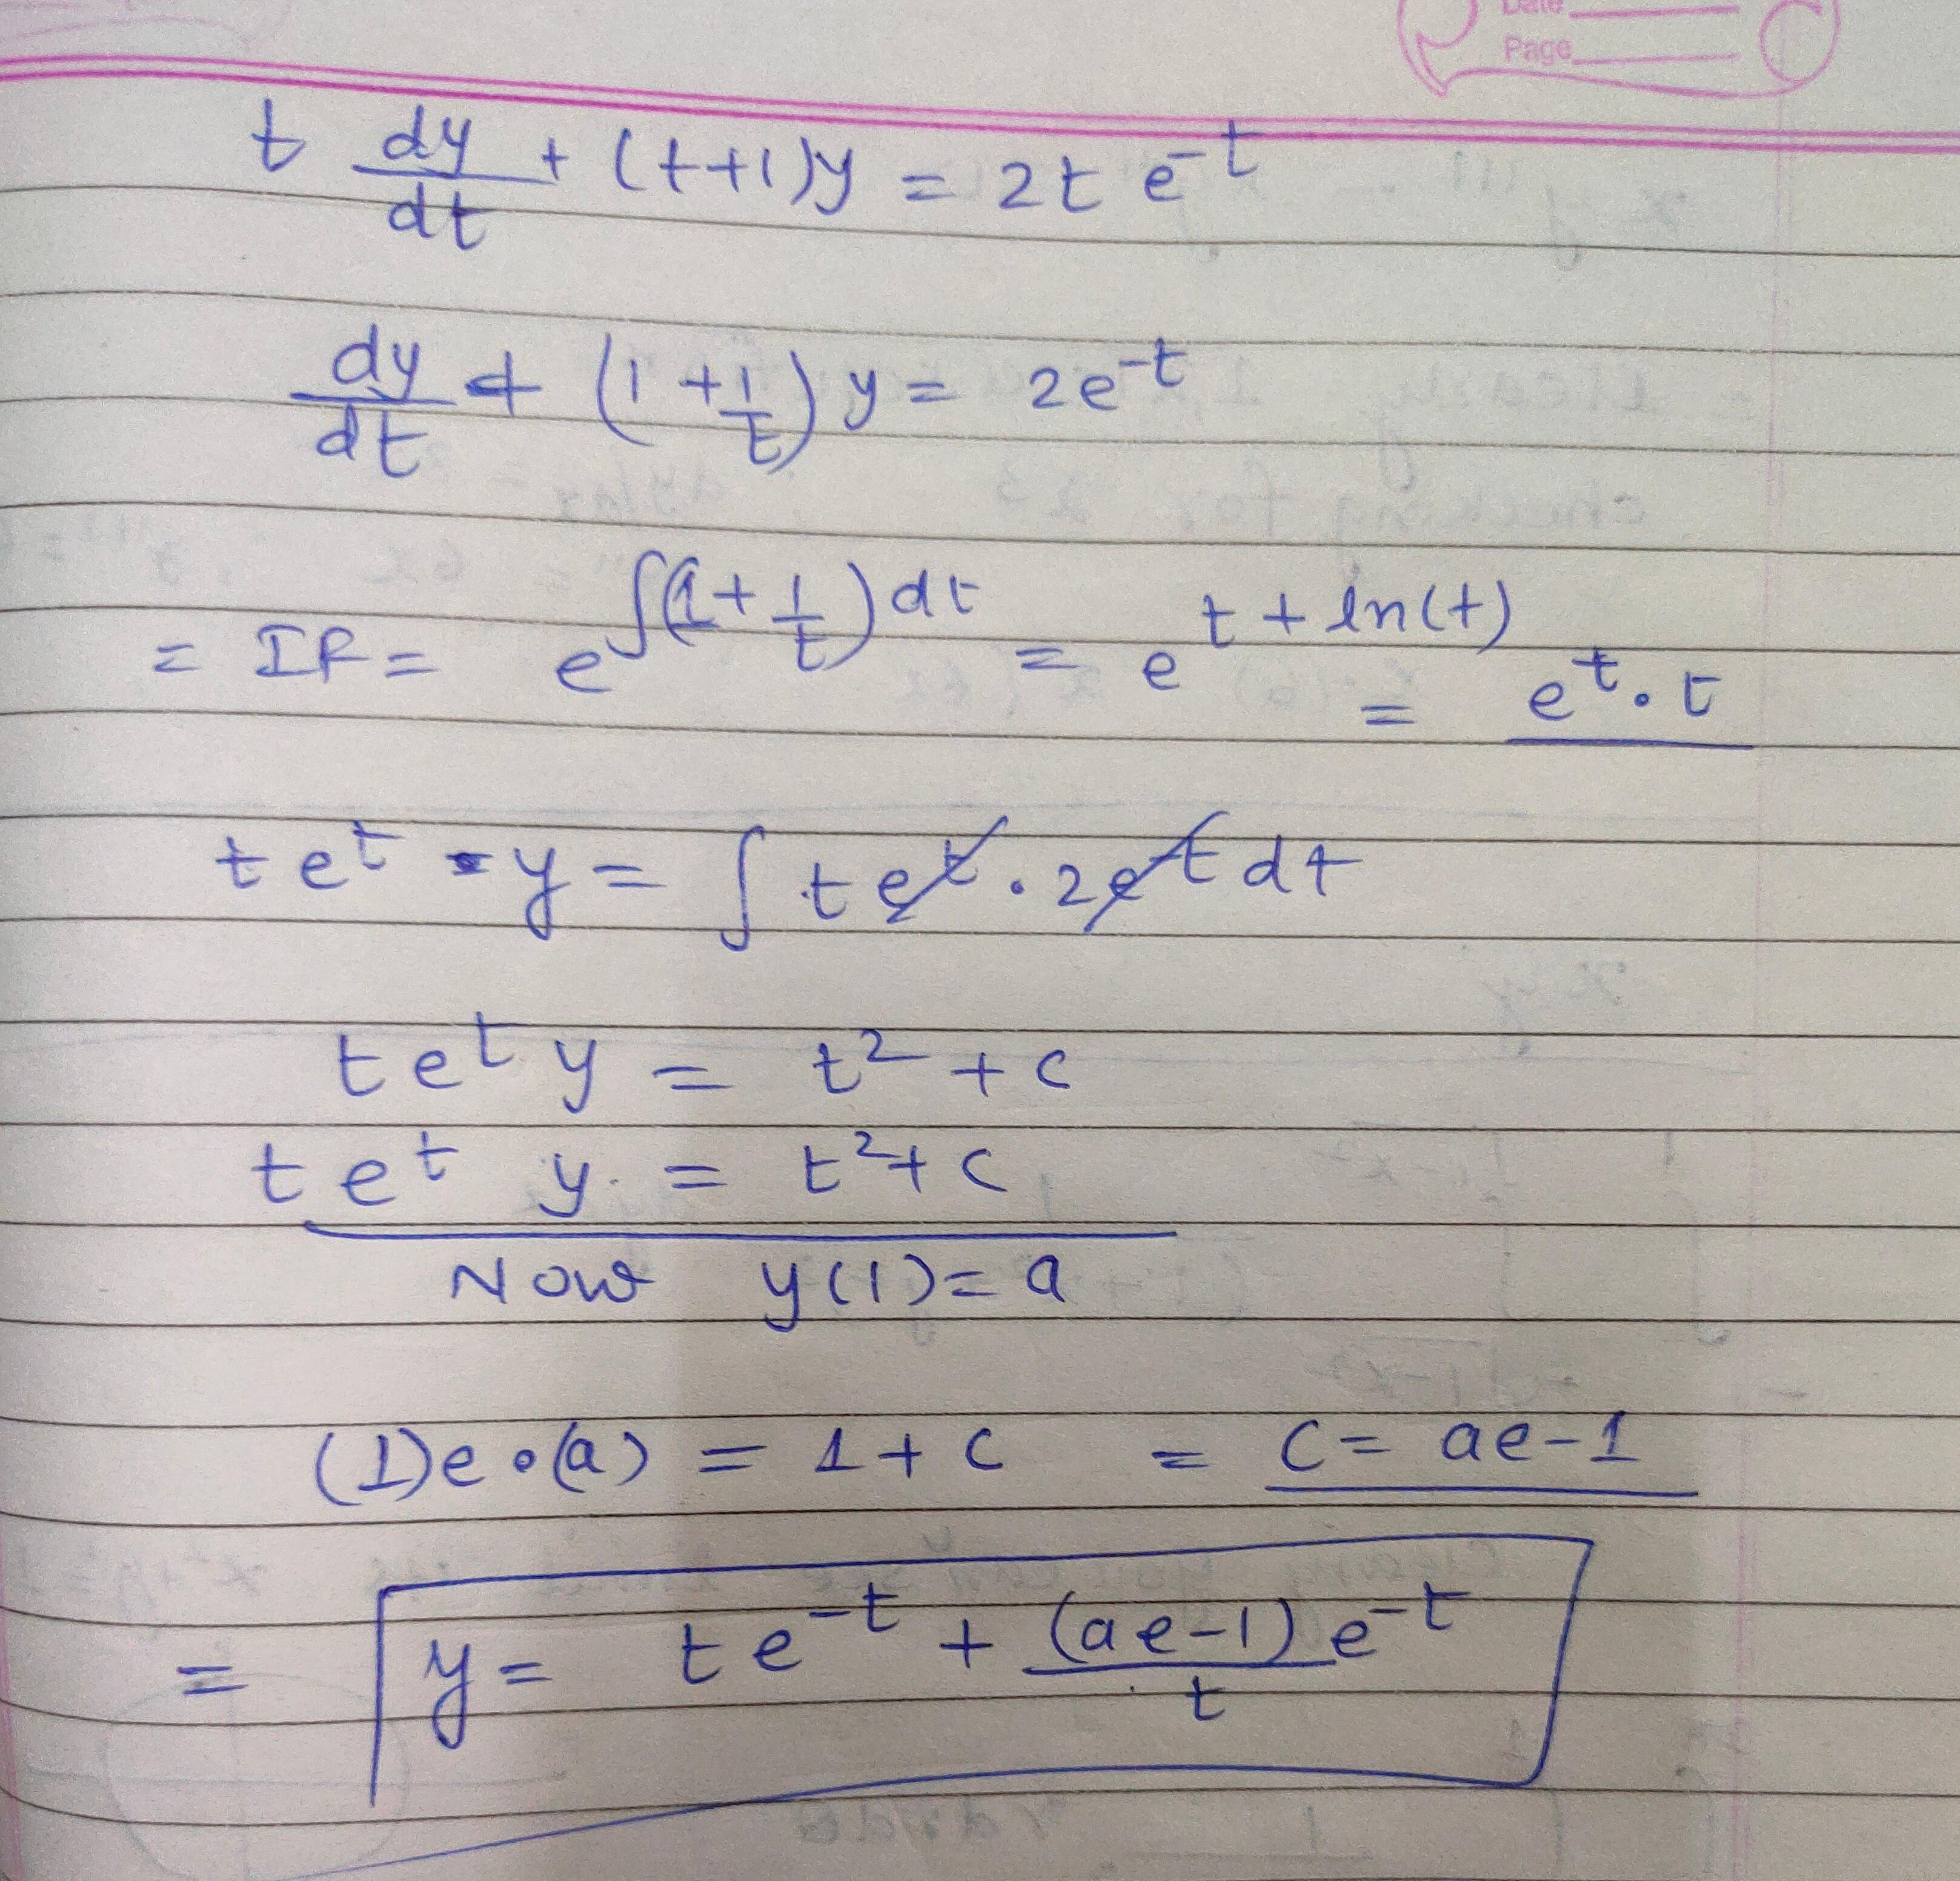 Date
Page
t dy/dt + (t+1)y = 2t e^-t
dy/dt + (1 + 1/t) y = 2e^-t
= IF = e^∫(1 + 1/t) dt = e^t + ln(t) = e^t . t
t e^t - y = ∫ t e^t . 2e^-t dt
t e^t y = t^2 + c
t e^t y = t^2 + c
Now y(1) = a
(1)e . (a) = 1 + c = c = ae-1
= y = t e^-t + (ae-1) e^-t / t